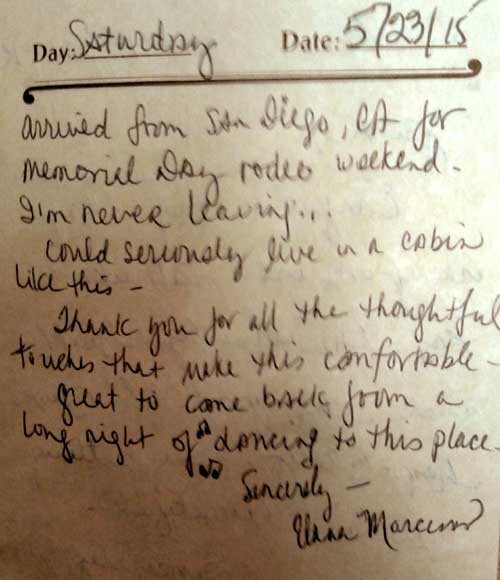 Day: Saturday Date: 5/23/15
arrived from San Diego, CA for
Memorial Day rodeo weekend.
I'm never leaving...
Could seriously live in a cabin
like this -
Thank you for all the thoughtful
touches that make this comfortable -
great to come back from a
long night of dancing to this place.
Sincerely -
Elana